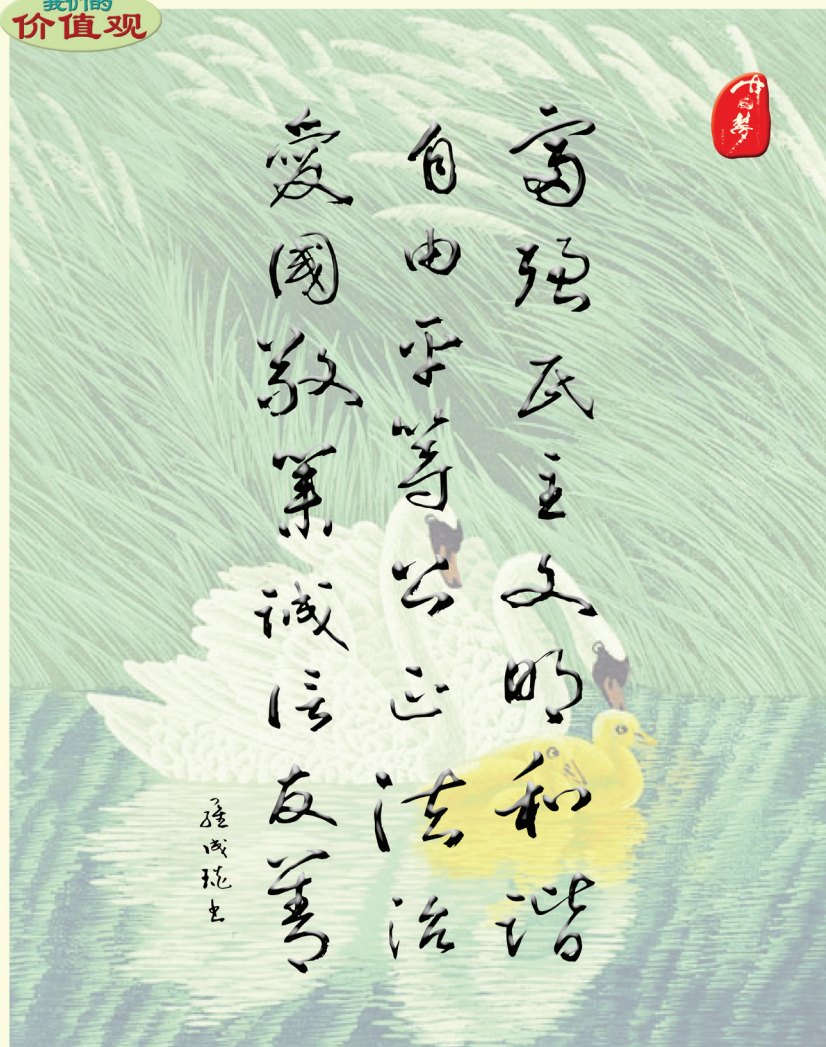 我们的
价值观
中国梦
富强民主文明和谐
自由平等公正法治
爱国敬业诚信友善